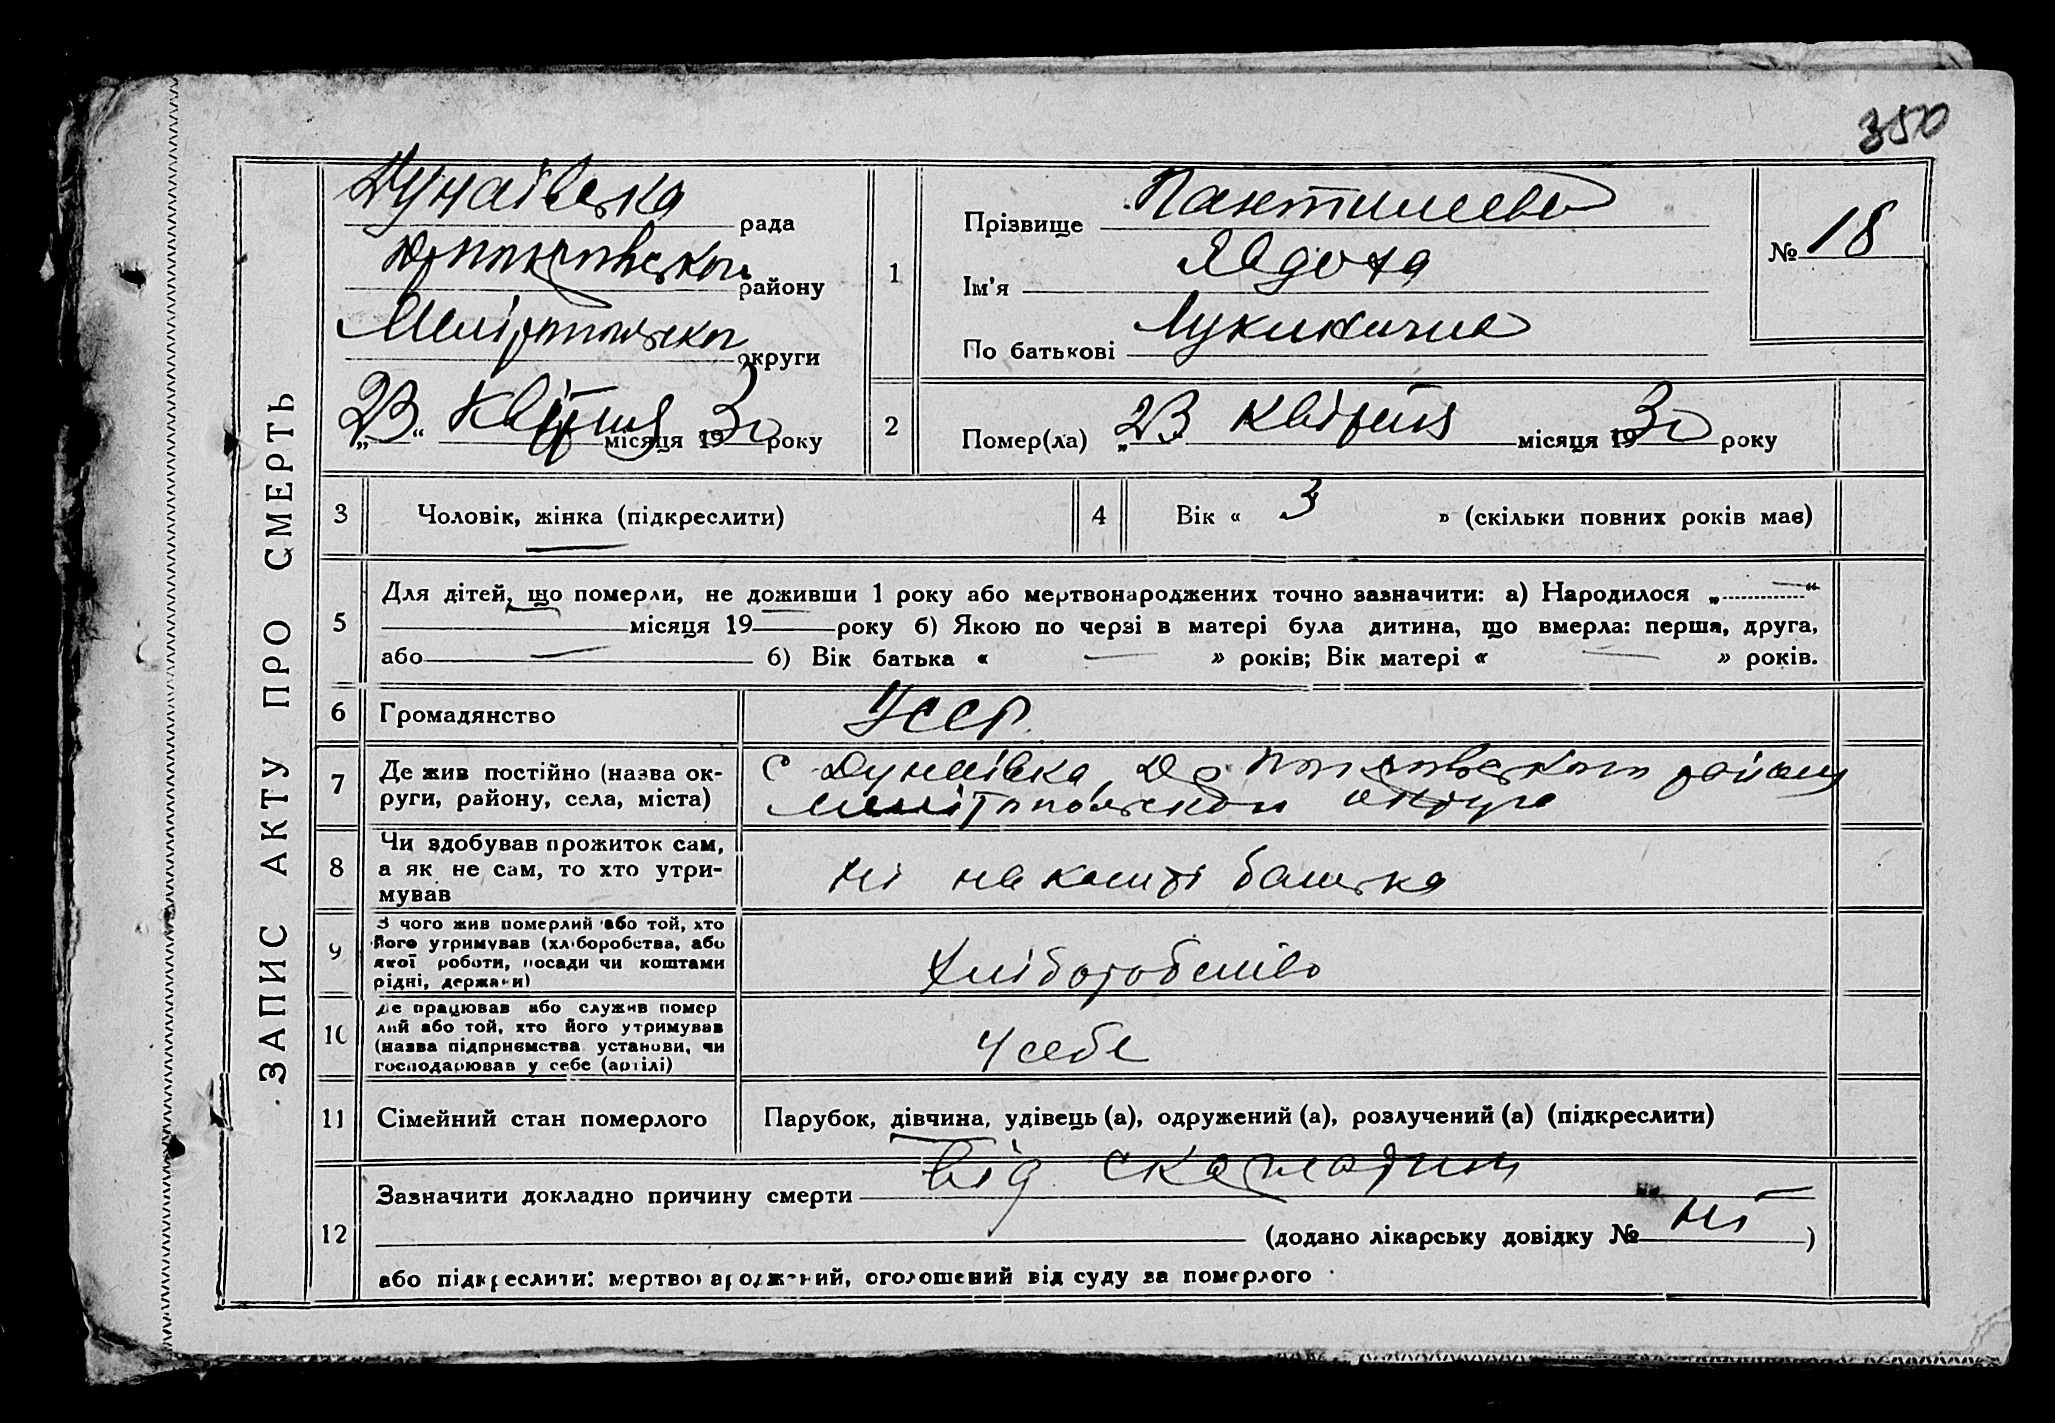 350
ЗАПИС АКТУ ПРО СМЕРТЬ
Дунаївська рада
району
Мелітопольської округи
„23“ Квітня місяця 1930 року
1
Прізвище Пантилеева
Ім'я Явдоха
По батькові Лукинична
№ 18
2
Помер(ла) „23 Квітня місяця 1930 року
3 Чоловік, жінка (підкреслити)
4 Вік « 3 » (скільки повних років має)
5 Для дітей, що померли, не доживши 1 року або мертвонароджених точно зазначити: а) Народилося „ — “
місяця 19 року б) Якою по черзі в матері була дитина, що вмерла: перша, друга,
або — б) Вік батька « — » років; Вік матері « — » років.
6 Громадянство УССР.
7 Де жив постійно (назва округи, району, села, міста)
с Дунаївка, району
Мелітопольської округи
8 Чи здобував прожиток сам,
а як не сам, то хто утри-
мував
ні на кошті батька
9 З чого жив померлий або той, хто
його утримував (хліборобства, або
якої роботи, посади чи коштами
рідні, держави)
Хліборобство
10 Де працював або служив помер
лий або той, хто його утримував
(назва підприємства установи, чи
господарював у себе (артілі)
У себе
11 Сімейний стан померлого
Парубок, дівчина, удівець (а), одружений (а), розлучений (а) (підкреслити)
12 Зазначити докладно причину смерти від скарлатини
(додано лікарську довідку № ні )
або підкреслити: мертвонароджений, оголошений від суду за померлого